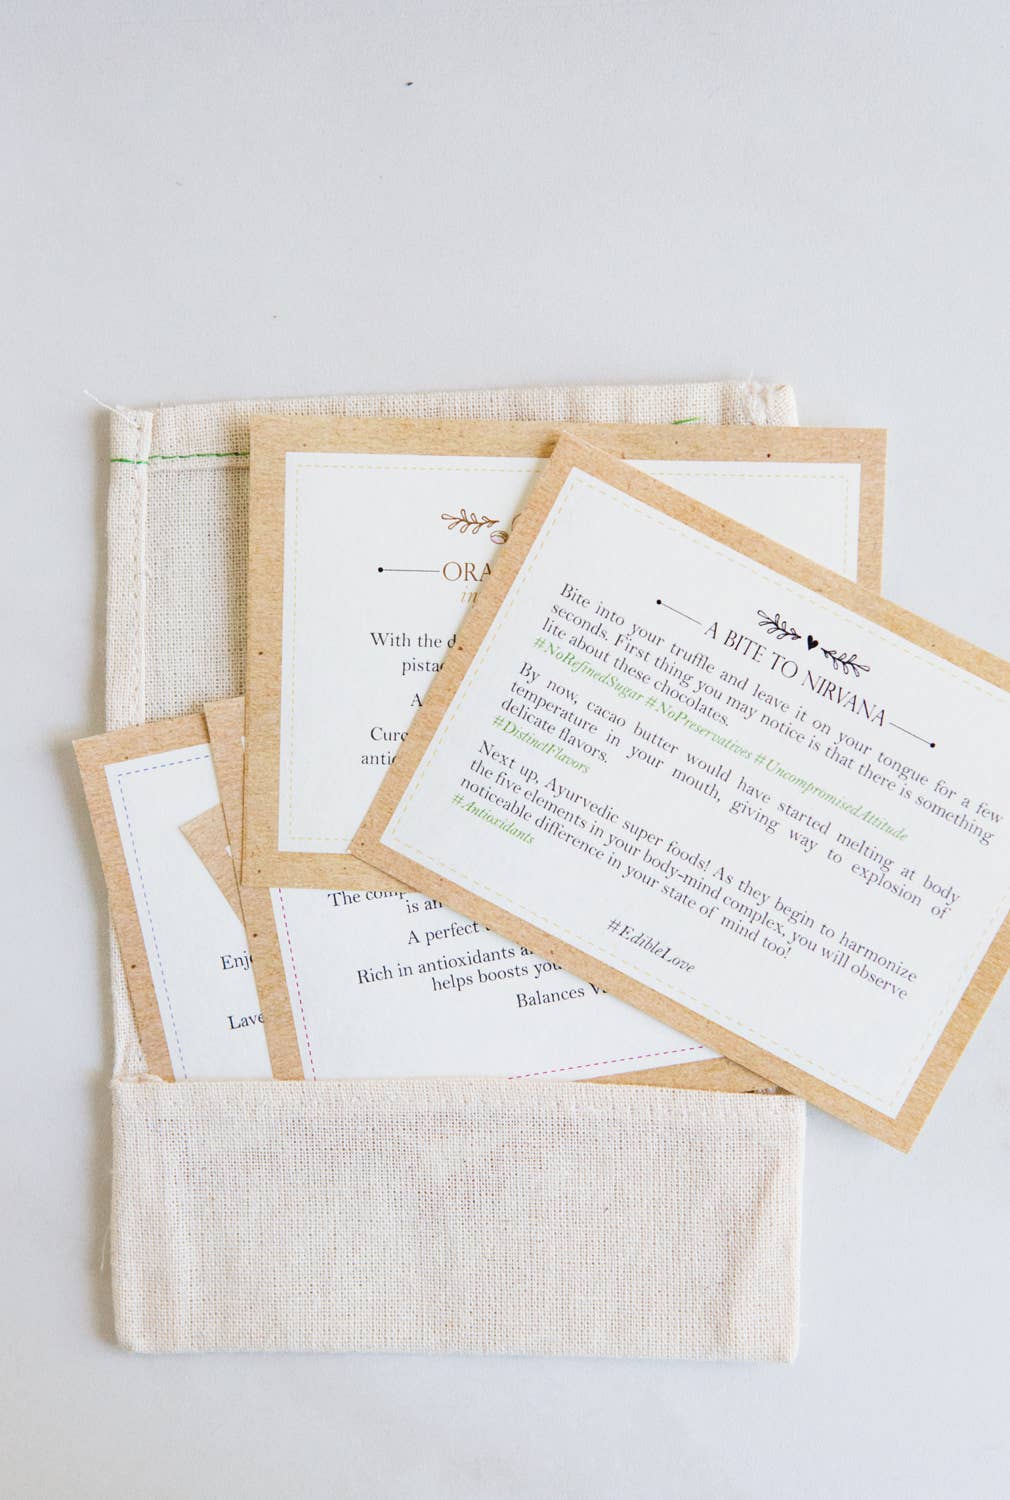 A BITE TO NIRVANA
Bite into your truffle and leave it on your tongue for a few
seconds. First thing you may notice is that there is something
lite about these chocolates.
#NoRefinedSugar #NoPreservatives #UncompromisedAttitude
By now, cacao butter would have started melting at body
temperature in your mouth, giving way to explosion of
delicate flavors.
#DistinctFlavors
Next up, Ayurvedic super foods! As they begin to harmonize
the five elements in your body-mind complex, you will observe
noticeable difference in your state of mind too!
#Antioxidants
#EdibleLove
ORA
in
With the d
pista
A
Curc
antio
The comp
is an
A perfect
Rich in antioxidants a
helps boosts you
Balances Va
Enj
Lave